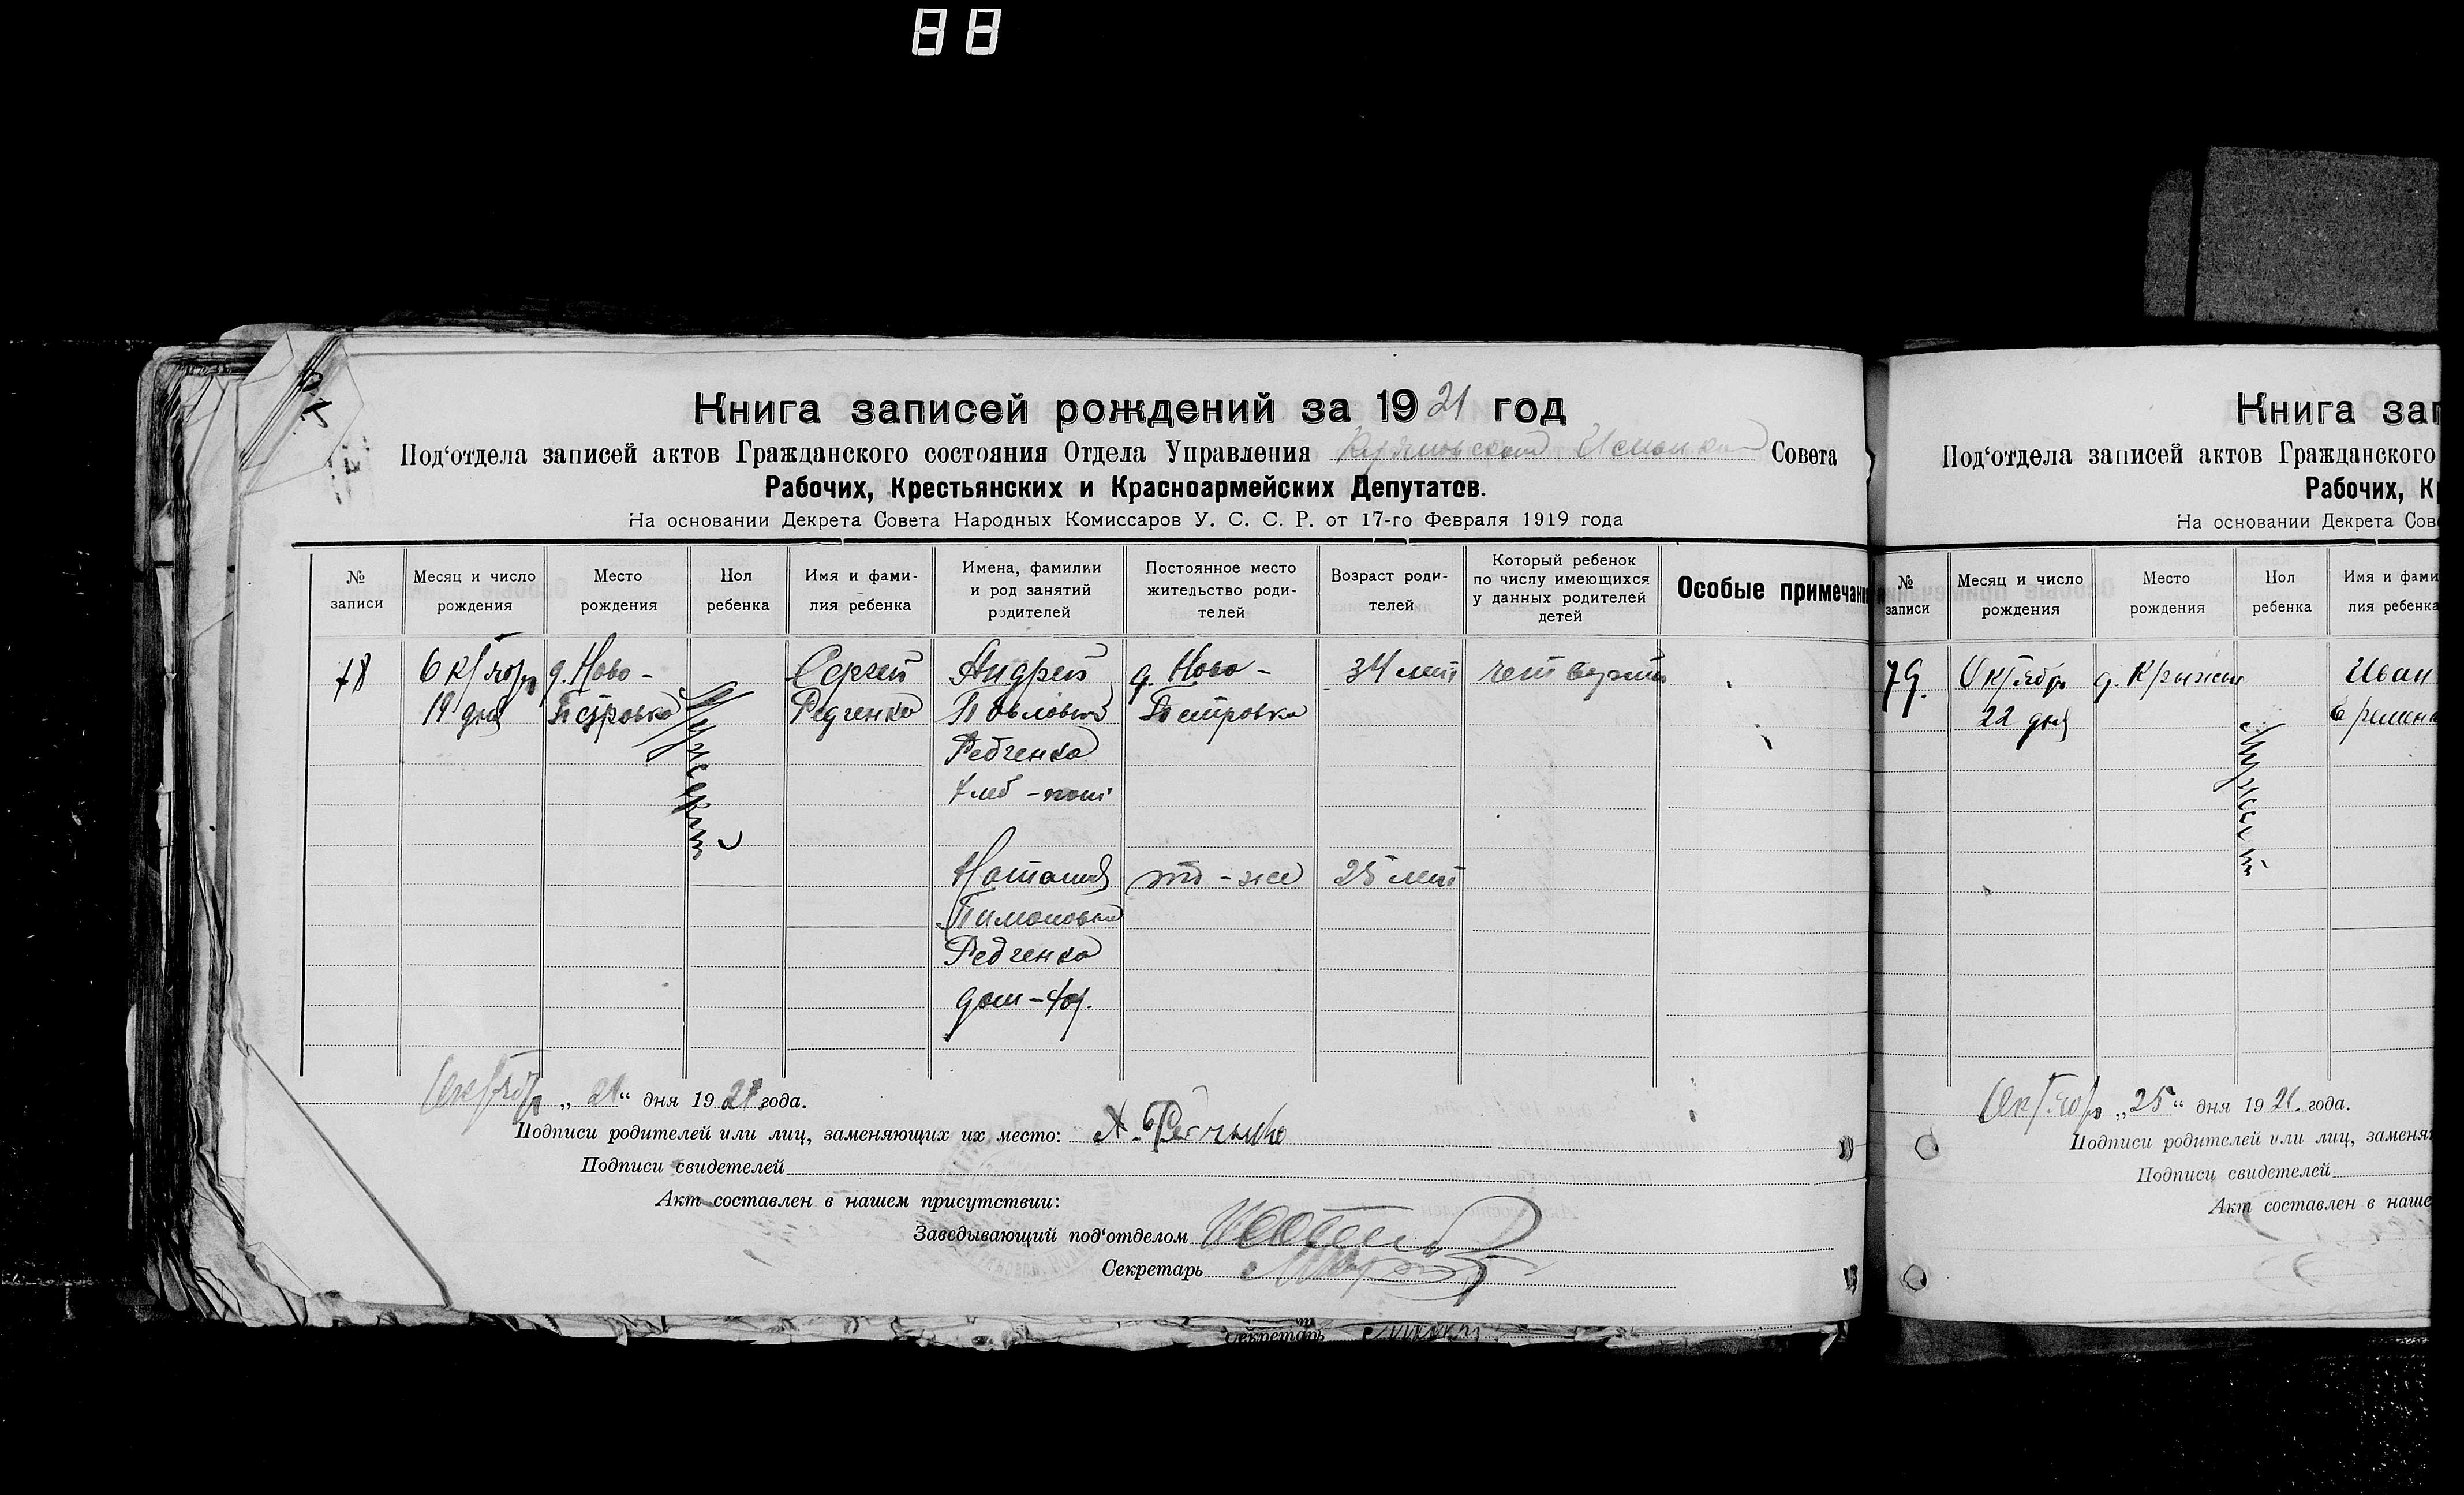 88
Книга записей рождений за 1921 год
Под‘отдела записей актов Гражданского состояния Отдела Управления Совета
Рабочих, Крестьянских и Красноармейских Депутатов.
На основании Декрета Совета Народных Комиссаров У. С. С. Р. от 17-го Февраля 1919 года
№ записи
Месяц и число рождения
Место рождения
Пол ребенка
Имя и фами-
лия ребенка
Имена, фамилии
и род занятий
родителей
Постоянное место
жительство роди-
телей
Возраст роди-
телей
Который ребенок
по числу имеющихся
у данных родителей
детей
Особые примечан
78
Октябр
19 дня
д. Ново-
Петровка
Мужской
Сергей
Редченко
Андрей
Павлович
Редченко
хлеб-паш
д. Ново-
Петровка
34 лет
четверт
Наталия
Пимоновна
Редченко
дом-хоз.
то-же
25 лет
Октябр „21“ дня 1921 года.
Подписи родителей или лиц, заменяющих их место: А. Редченко
Подписи свидетелей
Акт составлен в нашем присутствии:
Заведывающий под‘отделом
Секретарь
Секретарь
Книга зап
Под‘отдела записей актов Гражданского
Рабочих, Кр
На основании Декрета Сов
№ записи
Месяц и число
рождения
Место
рождения
Пол
ребенка
Имя и фами
лия ребенка
79.
Октябр
22 дня
д.
Мужской
Иван
Октябр „25“ дня 1921. года.
Подписи родителей или лиц, заменя
Подписи свидетелей
Акт составлен в наше